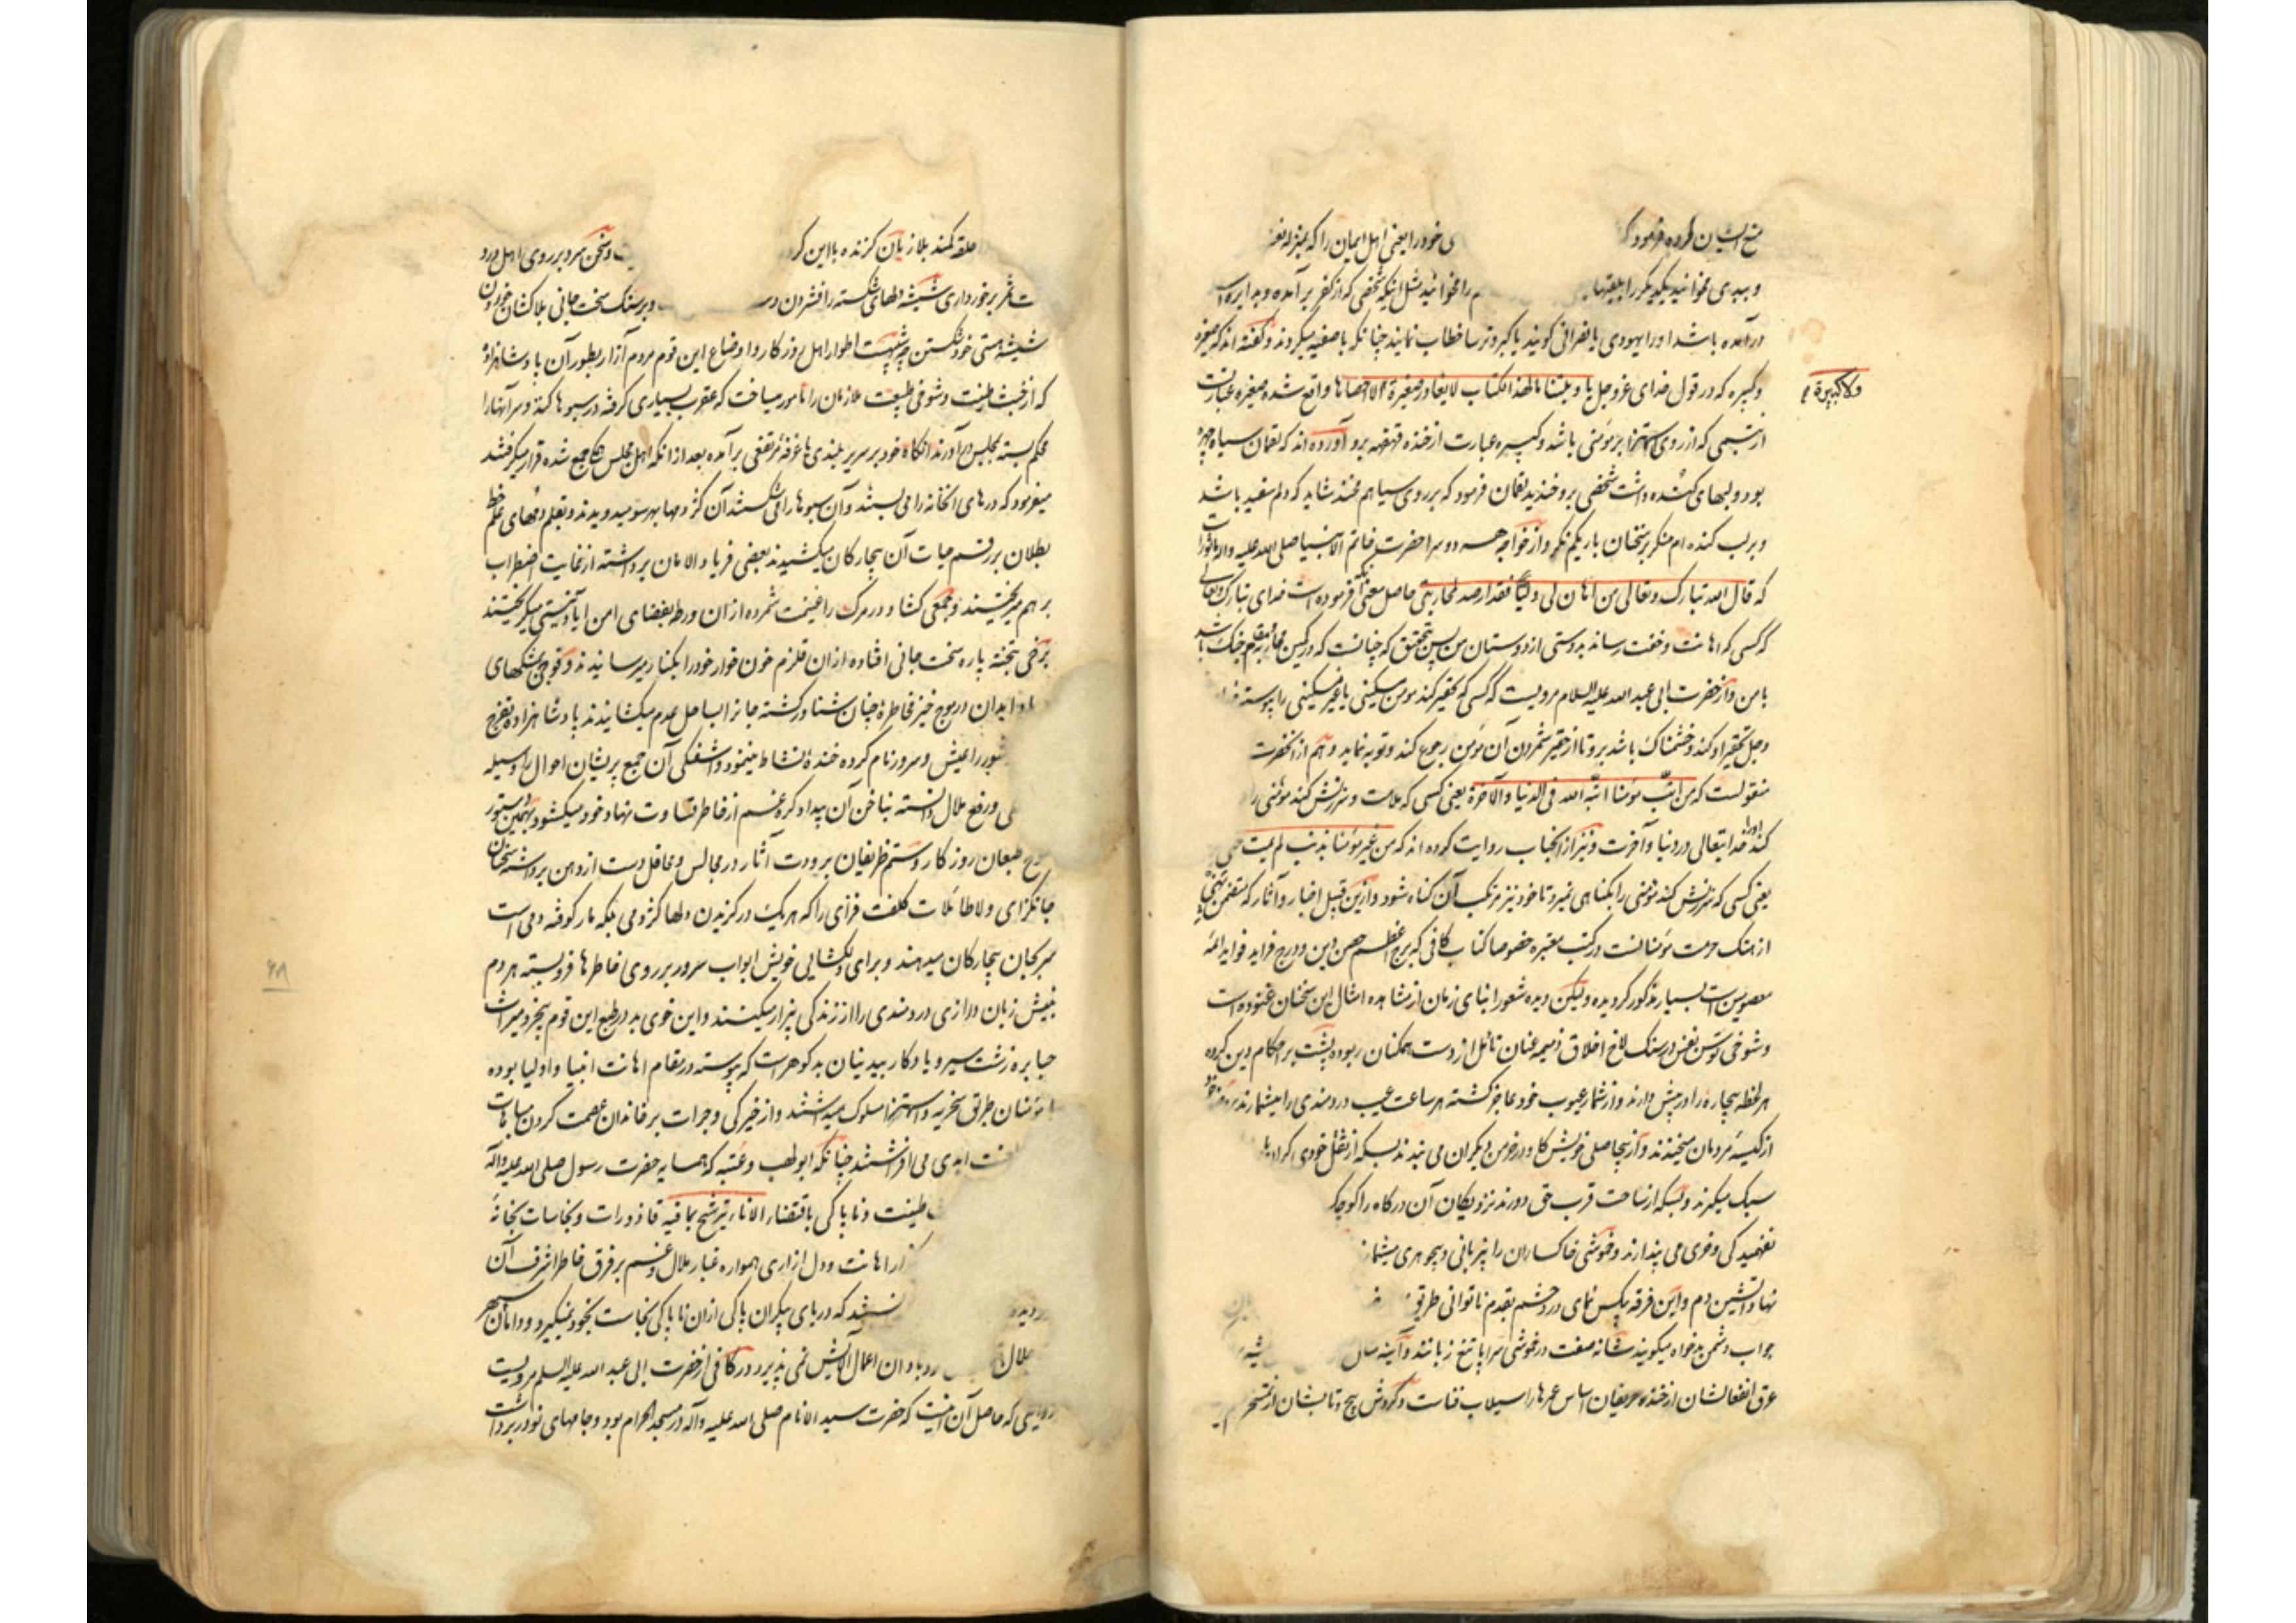 منع ایشان کرده فرمود که ی خود را یعنی اهل ایمان را که بمنزله نفر
و بدی مخوانید یکدیگر را بلقبها م را مخوانید مثل اینکه شخصی که از کفر برآمده و بدایره اسلام
درآمده باشد او را یهودی یا نصرانی گویند یا گبر و ترسا خطاب نمایند چنانکه با صفیه میکردند و گفته اند که صغیره
و کبیره که در قول خدای عز و جل یا ویلتنا ما لهذا الکتاب لا یغادر صغیرة الا احصاها واقع شده صغیره عبارتست
ولا کبیرة
از تبسمی که از روی استهزا بر مؤمنی باشد و کبیره عبارت از خنده قهقهه برو آورده اند که لقمان سیاه چهره
بود و لبهای گنده داشت شخصی برو خندید لقمان فرمود که بر روی سیاهم مخند شاید که دلم سفید باشد
و بر لب گنده ام منگر بر سخنان باریکم نگر و از خواجه هر دو سرا حضرت خاتم الانبیا صلی الله علیه واله ماثور است
که قال الله تبارک و تعالی من اهان لی ولیا فقد ارصد لمحاربتی حاصل معنی آنکه فرموده است خدای تبارک و تعالی
که کسی که اهانت و خفت رساند بدوستی از دوستان من پس بتحقیق که چنانست که در کمین محاربه و مقام جنگ باشد
با من و از حضرت ابی عبد الله علیه السلام مرویست که کسی که تحقیر کند مومن مسکینی یا غیر مسکینی را پیوسته خدای
و جل تحقیر او کند و خشمناک باشد برو تا از حقیر شمردن آن مؤمن رجوع کند و توبه نماید و هم از آنحضرت
منقولست که من انّب مؤمنا انّبه الله فی الدنیا والآخرة یعنی کسی که ملامت و سرزنش کند مؤمنی را
کند او را خدایتعالی در دنیا و آخرت و نیز از آنجناب روایت کرده اند که من عیر مؤمنا بذنب لم یمت حتی
یعنی کسی که سرزنش کند مؤمنی را بگناهی نمیرد تا خود نیز مرتکب آن گناه شود و ازین قبیل اخبار و آثار که متضمن نهی
از هتک حرمت مؤمنانست در کتب معتبره خصوصا کتاب کافی که برج اعظم حصن دین و درج فراید فواید ائمه
معصومین است بسیار مذکور گردیده ولیکن دیده شعور ابنای زمان از مشاهده امثال این سخنان غنوده است
و شوخی توسن نفس در سنگلاخ اخلاق ذمیمه عنان تامل از دست همگنان ربوده پشت بر احکام دین کرده
هر لحظه بیچاره را در پیش دارند و از شمار عیوب خود عاجز گشته هر ساعت عیب دردمندی را میشمارند
از کیسه مردمان میخندند و از بیحاصلی خویش کاه در خرمن دیگران می بیند بسکه از ثقل خودی گران بار
سبک میگیرند و بسکه از ساحت قرب حق دورند نزدیکان آن درگاه را کوچک
نفهمیدگی و خری می پندارند و خموشی خاکساران را بیزبانی و بیجوهری میشمارند
نهاد آتشین دم و این فرقه بیکس نمای در چشم بقدم ناتوانی طریق
جواب دشمن بدخواه میگویند شانه صفت در خموشی سراپا تیغ زبانند و آینه سان
عرق انفعالشان از خنده حریفان اساس عمرها را سیلاب فناست و گردش پیچ و تابشان از تمسخر
حلقه کمند بلا زبان گزنده با این گر ت و سخن سرد بر روی اهل درد
ت ثمر برخورداری شیشه دلهای شکسته را فشردن در و بر سنگ سخت جانی بلاکشان خوردن
شیشه هستی خود شکستن چه شبیهست اطوار اهل روزگار و اوضاع این قوم مردم آزار بطور آن پادشاهزاده
که از خبث طینت و شوخی طبیعت ملازمان را مامور میساخت که عقرب بسیاری گرفته در سبوها کنند و سر آنها را
محکم بسته بمجلس درآورند آنگاه خود بر سریر بلندی یا غرفه مرتفعی برآمده بعد از آنکه اهل مجلس همگی جمع شده قرار میگرفتند
میفرمود که درهای آنخانه را می بستند و آن سبوها را می شکستند آن کژدمها بهر سو میدویدند و بقلم دمهای علم خط
بطلان بر رقم حیات آن بیچارگان میکشیدند بعضی فریاد الامان برداشته از غایت اضطراب
بر هم میریختند و جمعی گشاد در مرگ را غنیمت شمرده از آن ورطه بفضای امن آباد نیستی میگریختند
برخی بتخته پاره سخت جانی افتاده از آن قلزم خون خوار خود را بکنار میرسانیدند و فوجی بمشکهای
ابدان در موج خیز مخاطره چنان شناور گشته جانرا بساحل عدم میکشانیدند پادشاهزاده بتفرج
شور را عیش و سرور نام کرده خنده نشاط مینمود و آشفتگی آن جمع پریشان احوال را وسیله
و رفع ملال دانسته بناخن آن بیداد گره غم از خاطر قساوت نهاد خود میگشود بهمین دستور
طبعان روزگار و ستم ظریفان برودت آثار در مجالس و محافل دست از دهن برداشته سخنان
جانگزای و لاطائلات کلفت فزای را که هر یک در گزیدن دلها کژدمی بلکه مار کوفته دمی است
سر بجان بیچارگان میدهند و برای دلگشایی خویش ابواب سرور بر روی خاطرها فرو بسته هر دم
بنیش زبان درازی دردمندی را از زندگی بیزار میکنند و این خوی بد در طبع این قوم بیخرد میراث
جبابره زشت سیر و یادگار بیدینان بدگوهر است که پیوسته در مقام اهانت انبیا و اولیا بوده
با مؤمنان طریق سخریه و استهزا مسلوک میداشتند و از خیرگی و جرات بر خاندان عصمت گردن مباهات
ابدی می افراشتند چنانکه ابولهب و عتبه که همسایه حضرت رسول صلی الله علیه وآله
طینت و ناپاکی باقتضاء الاناء یترشح بما فیه قاذورات و نجاسات بخانه
اهانت و دل آزاری همواره غبار ملال و غم بر فرق خاطر اشرف آن
ردیده که دریای بیکران پاکی از آن ناپاکی نجاست بخود نمیگیرد و دامان سپهر
جلال روبادان اعمال آلایش نمی پذیرد در کافی از حضرت ابی عبد الله علیه السلم مرویست
روایتی که حاصل آن اینست که حضرت سید الانام صلی الله علیه وآله در مسجد الحرام بود و جامهای نو در بر داشت
۶۸